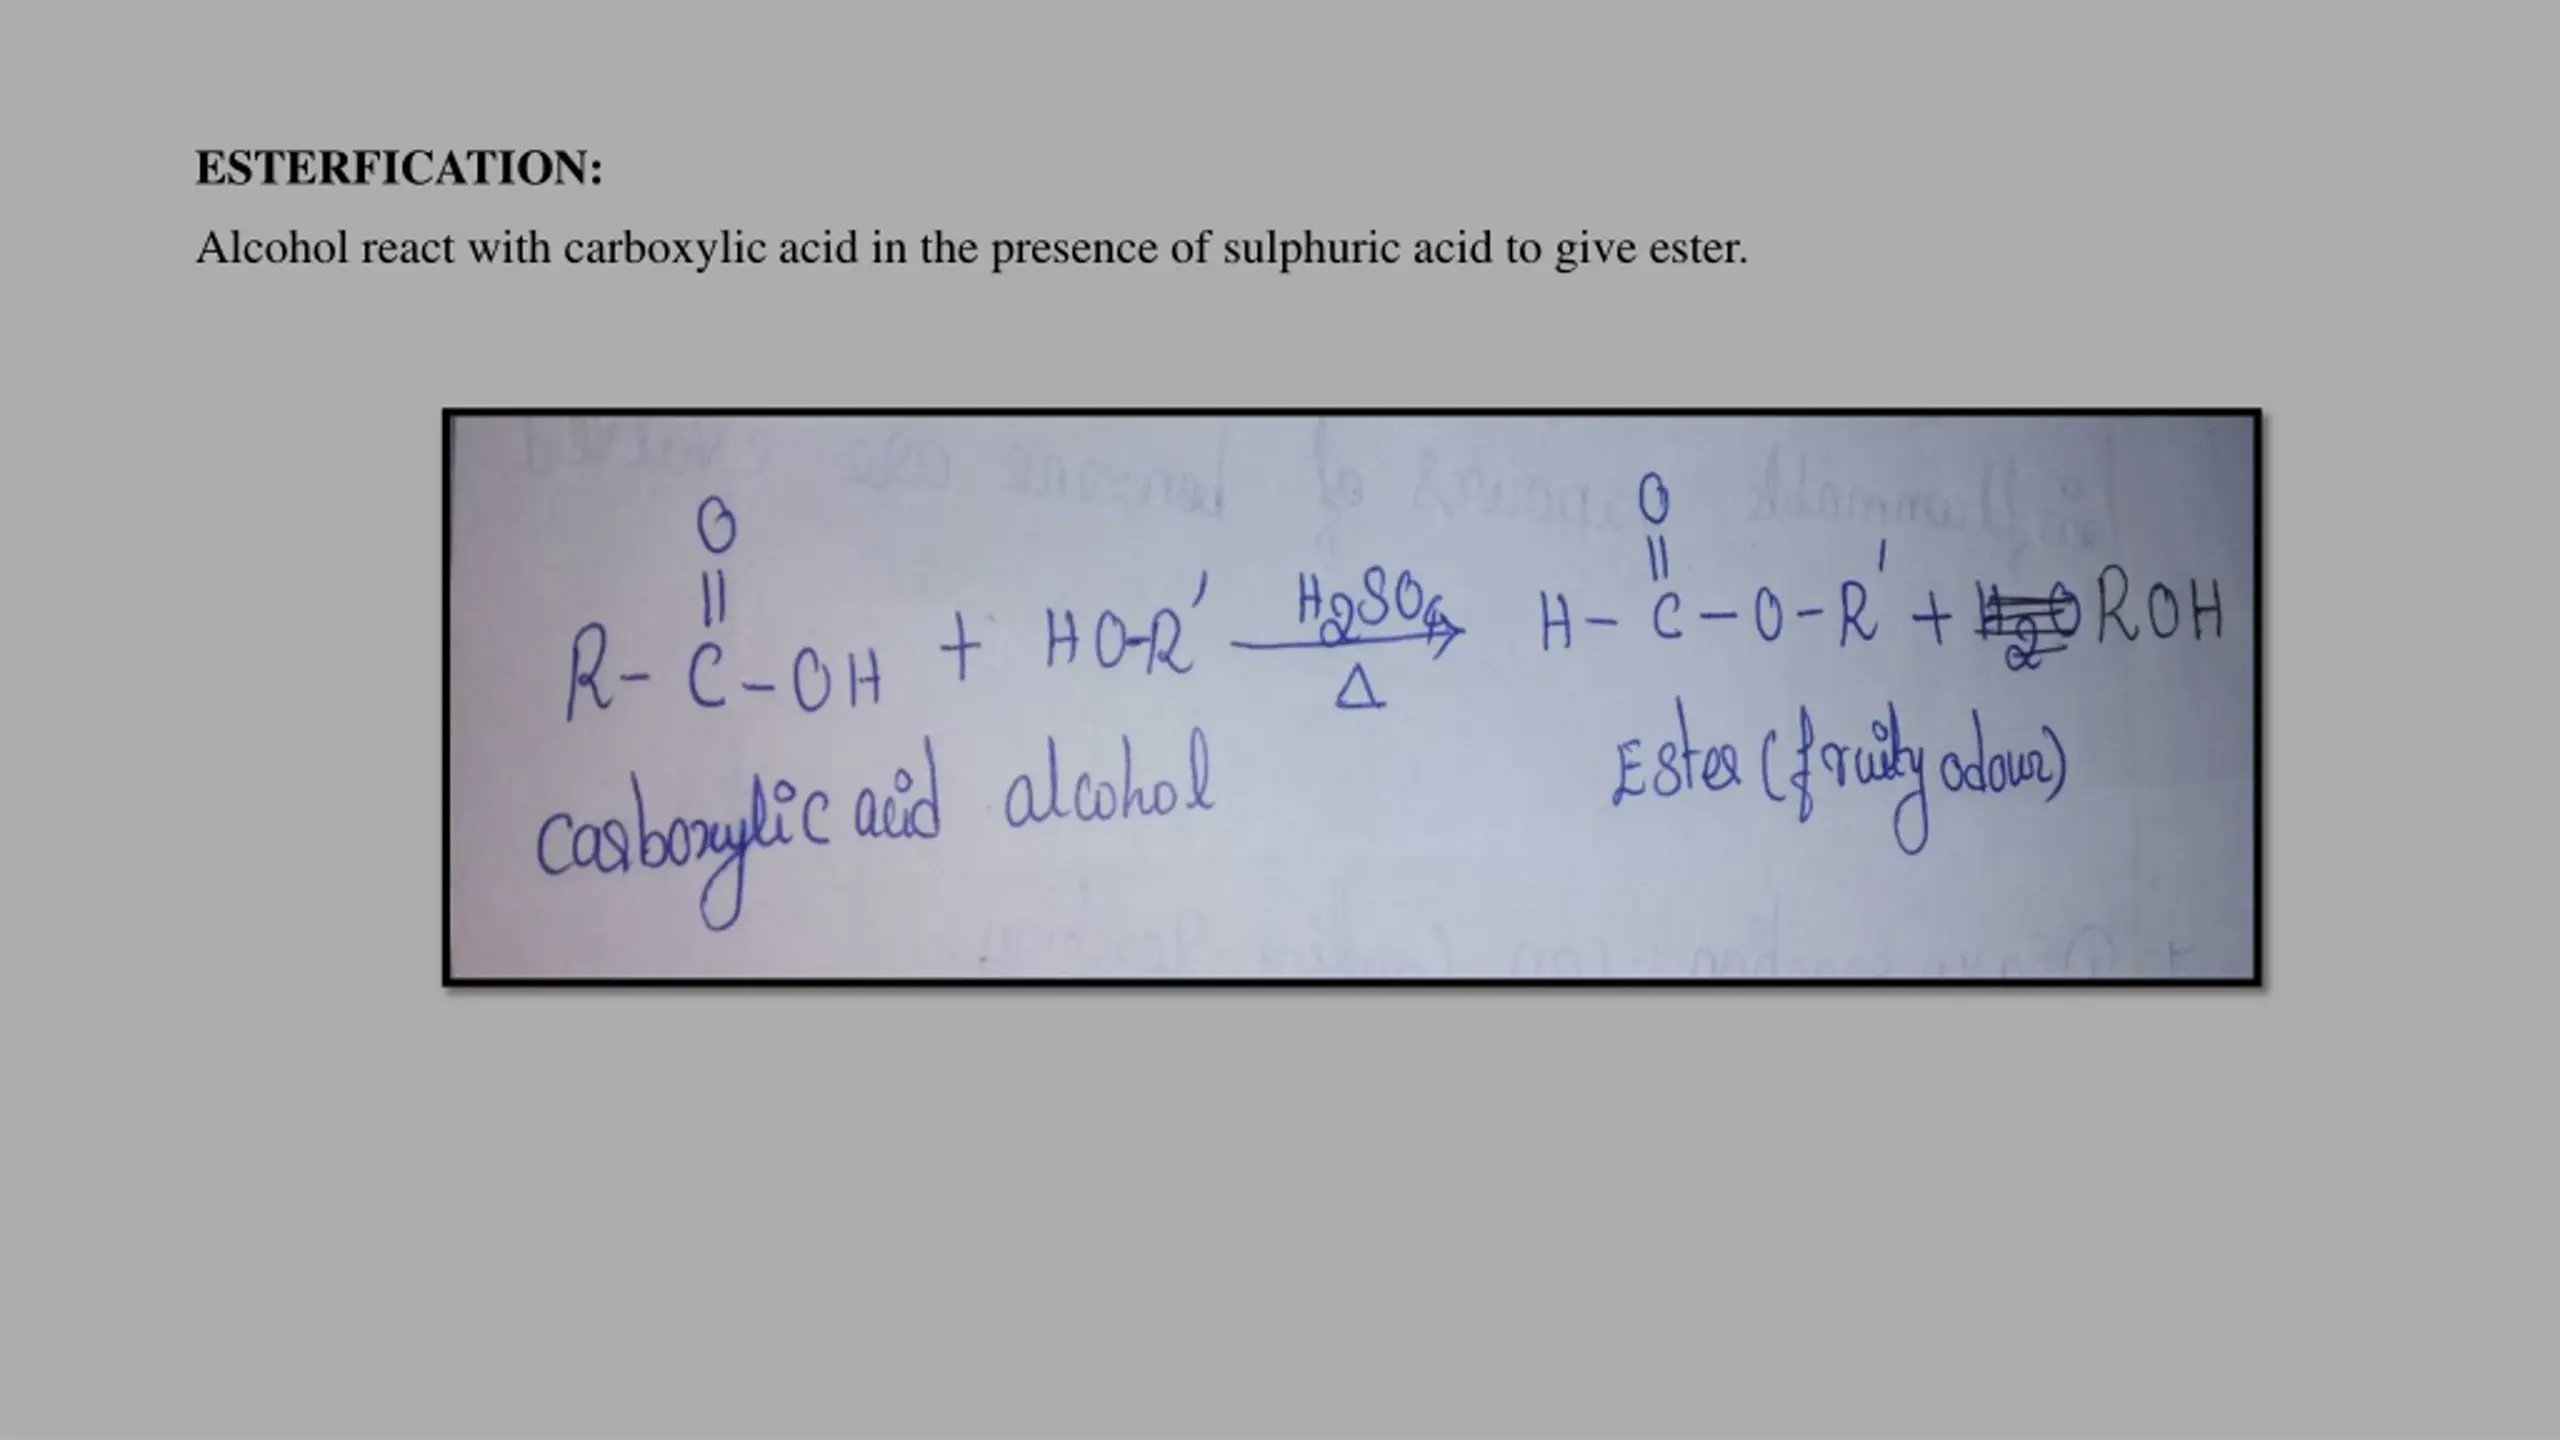 ESTERFICATION:
Alcohol react with carboxylic acid in the presence of sulphuric acid to give ester.
O O
|| ||
R - C - OH + HO-R' H2SO4 H - C - O - R' + H2O ROH
Δ
Carboxylic acid alcohol Ester (fruity odour)